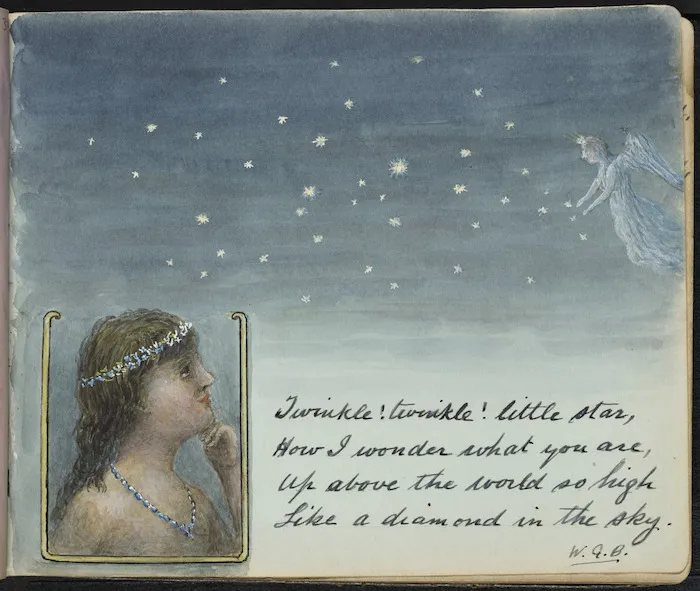 Twinkle! twinkle! little star,
How I wonder what you are,
Up above the world so high
Like a diamond in the sky.
W.G.B.